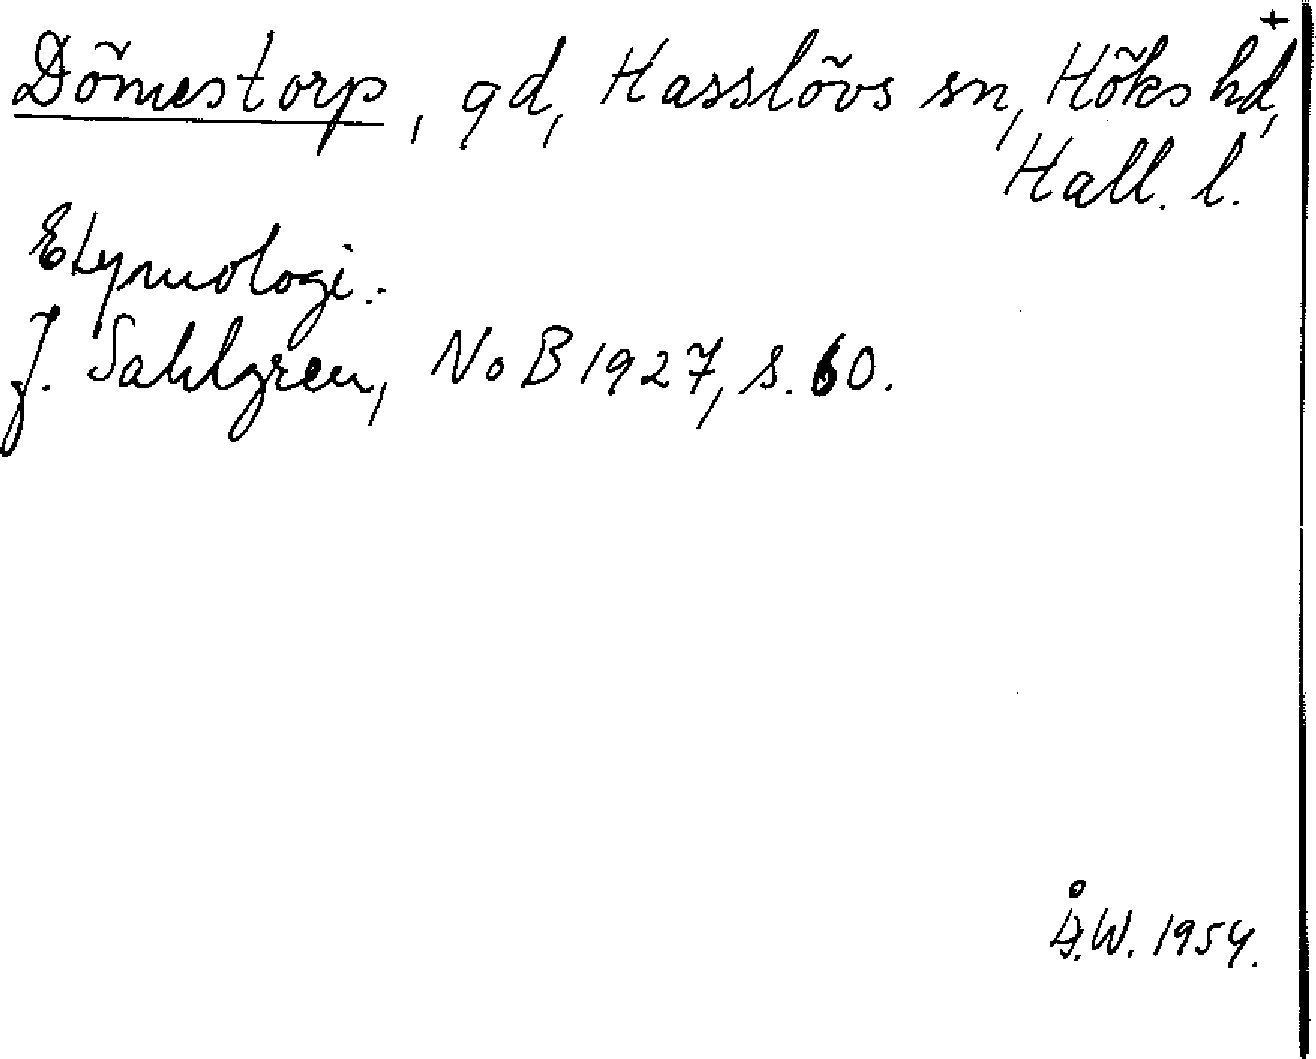 Dömestorp, gd, Hasslövs sn, Höks hd, +
Hall. l.
Etymologi:
J. Sahlgren, NoB 1927, s. 60.
Å.W. 1954.